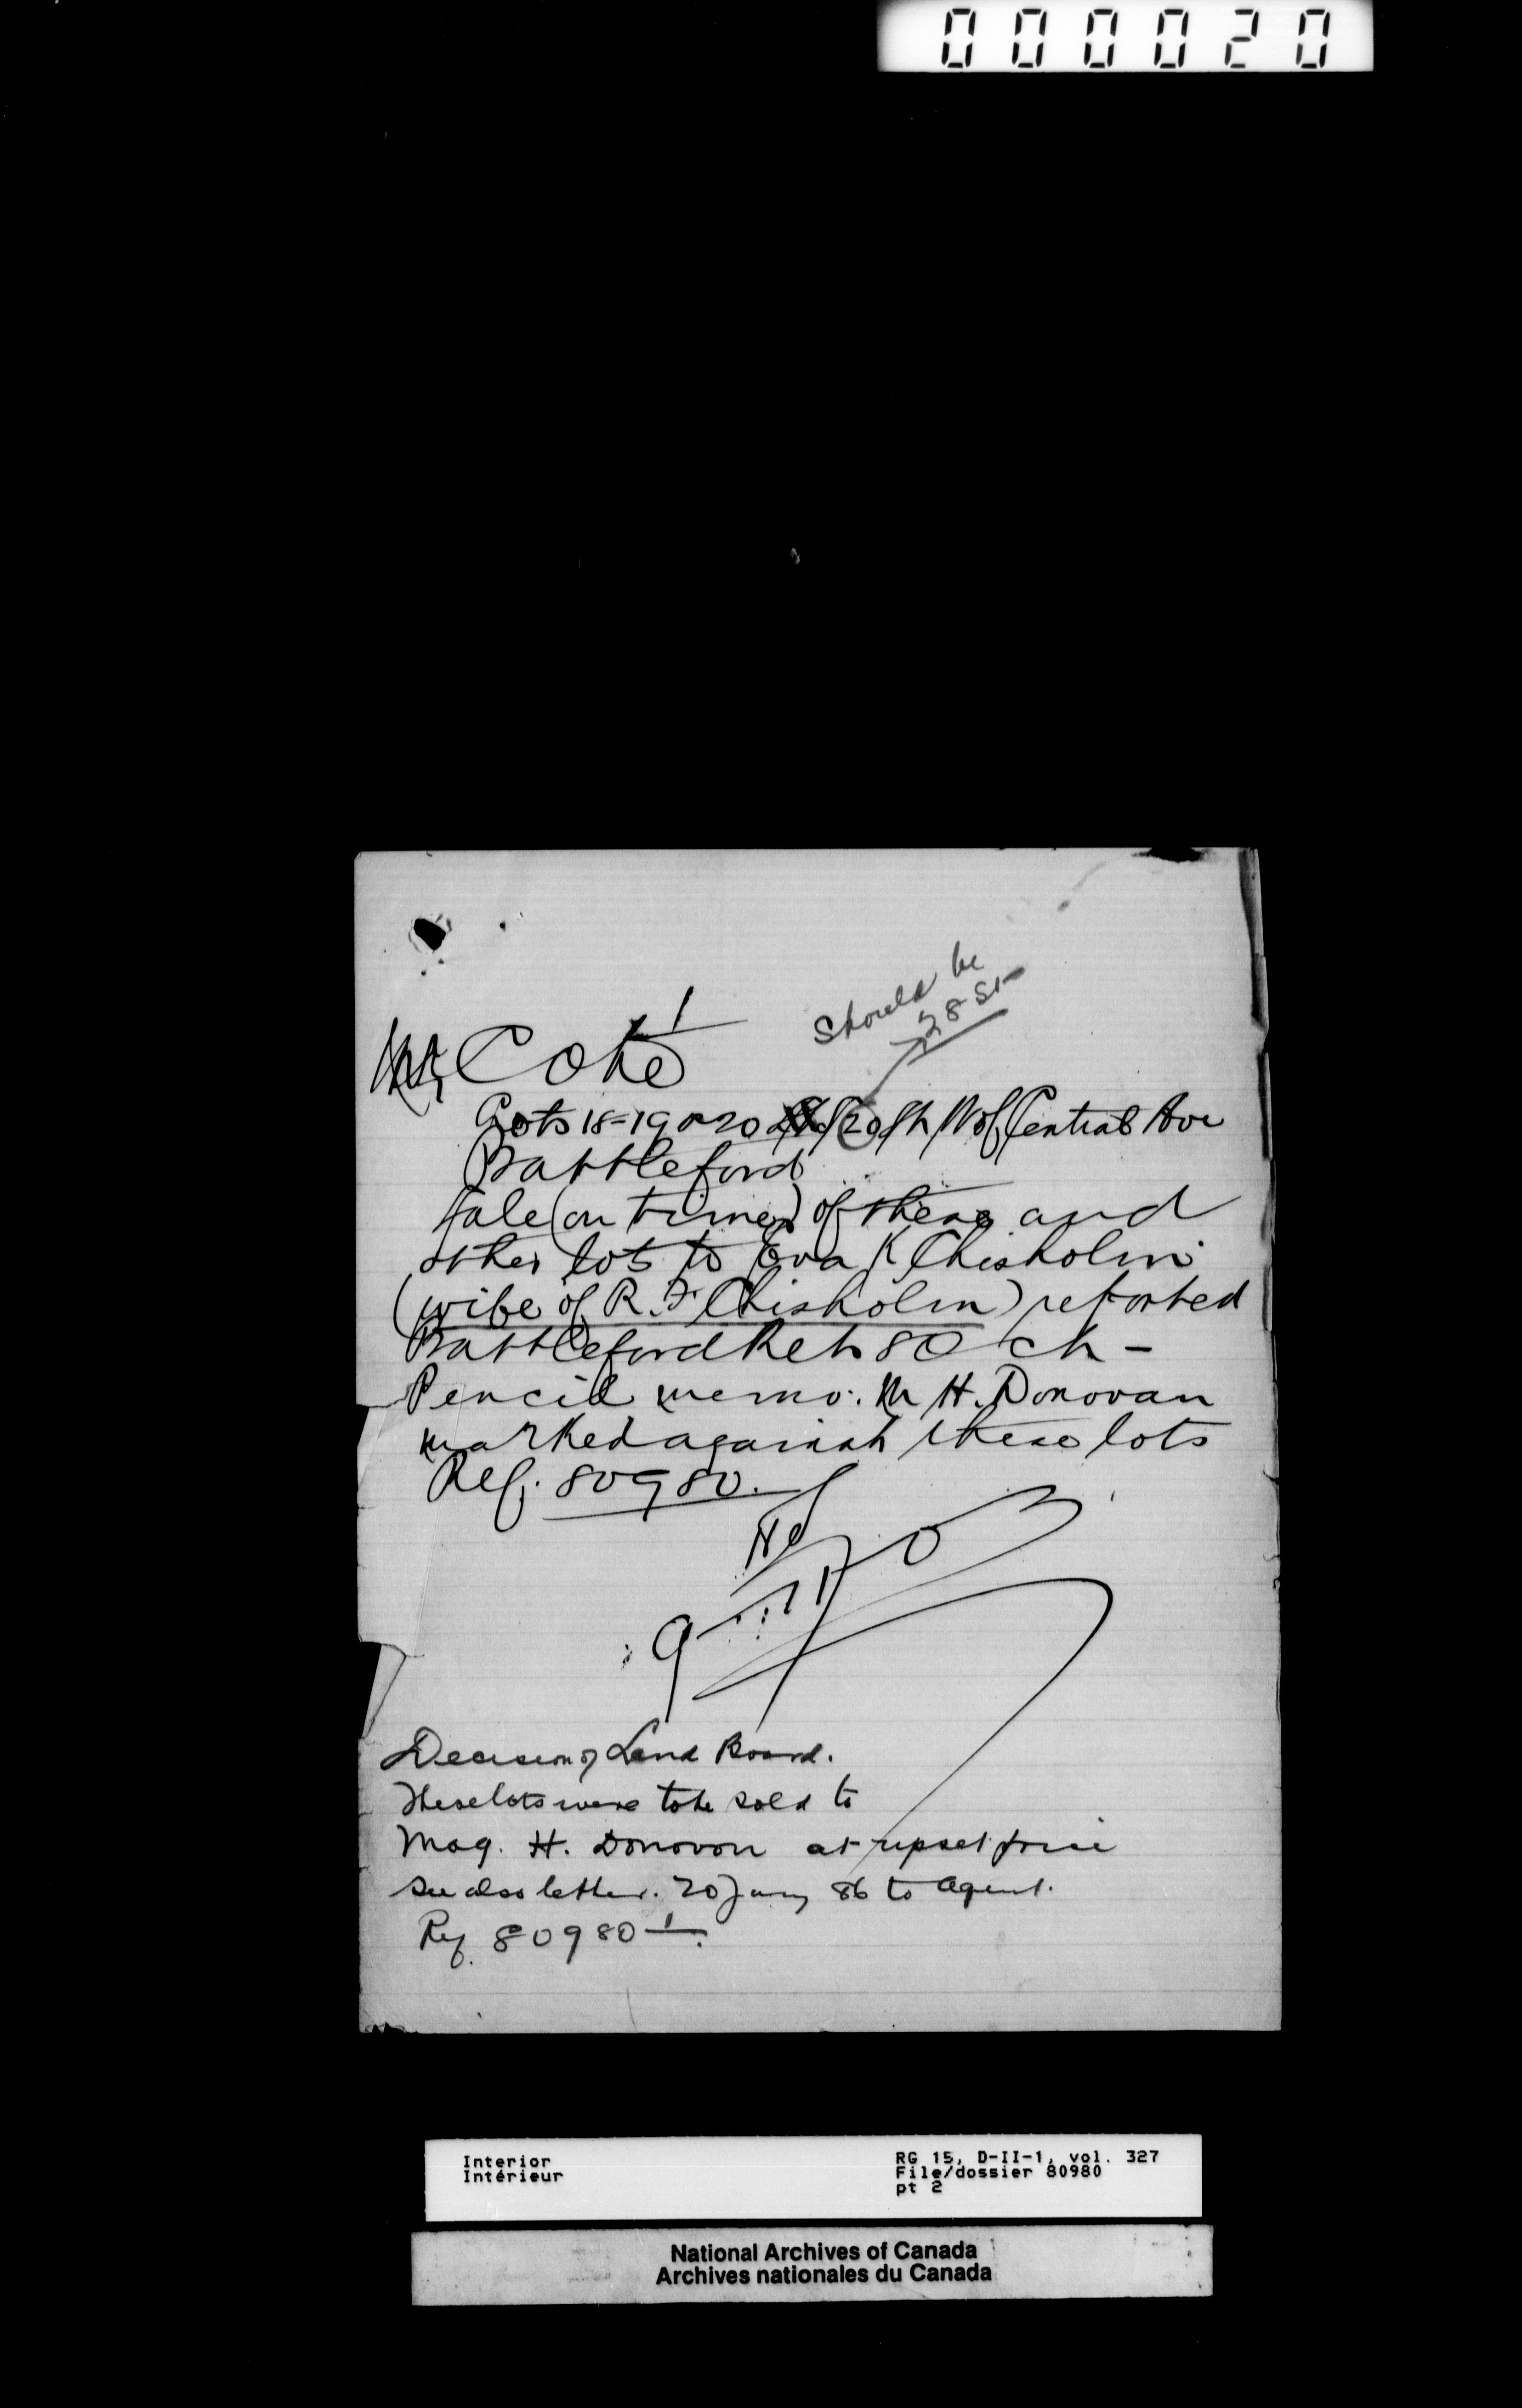 000020
Should be
28 St
1
Mr Coté
Lots 18-19 & 20 20 St W of Central Ave
Battleford
Sale (on time) of these and
other lots to Eva K Chisholm
(wife of R. F Chisholm) reported
Battleford Ret 80 Ch -
Pencil memo. M H. Donovan
marked against these lots
Ref. 80980.
9
Decision of Land Board.
These lots were to be sold to
Mag. H. Donovon at upset price
See also letter. 20 Jany 86 to Agent.
Ref 80980 1
Interior
Intérieur
RG 15, D-II-1, vol. 327
File/dossier 80980
pt 2
National Archives of Canada
Archives nationales du Canada